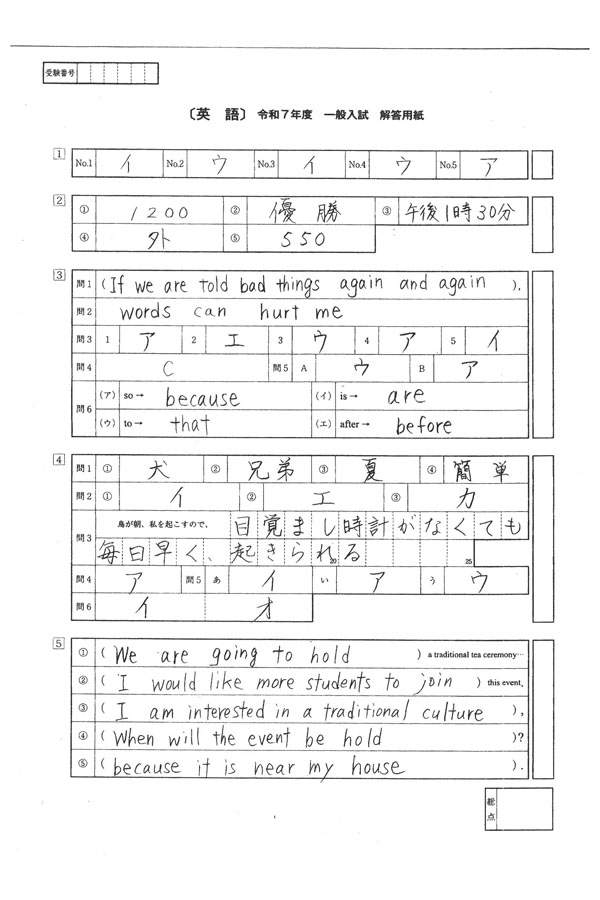 受験番号
〔英 語〕 令和7年度 一般入試 解答用紙
1 No.1 イ No.2 ウ No.3 イ No.4 ウ No.5 ア
2 ① 1200 ② 優勝 ③ 午後1時30分
④ 外 ⑤ 550
3 問1 (If we are told bad things again and again ).
問2 words can hurt me
問3 1 ア 2 エ 3 ウ 4 ア 5 イ
問4 C 問5 A ウ B ア
問6 (ア) so→ because (イ) is→ are
(ウ) to→ that (エ) after→ before
4 問1 ① 犬 ② 兄弟 ③ 夏 ④ 簡単
問2 ① イ ② エ ③ カ
問3 鳥が朝、私を起こすので、 目覚まし時計がなくても
毎日早く、起きられる 20 25
問4 ア 問5 あ イ い ア う ウ
問6 イ オ
5 ① ( We are going to hold ) a traditional tea ceremony…
② ( I would like more students to join ) this event.
③ ( I am interested in a traditional culture ),
④ (When will the event be hold )?
⑤ ( because it is near my house ).
総点